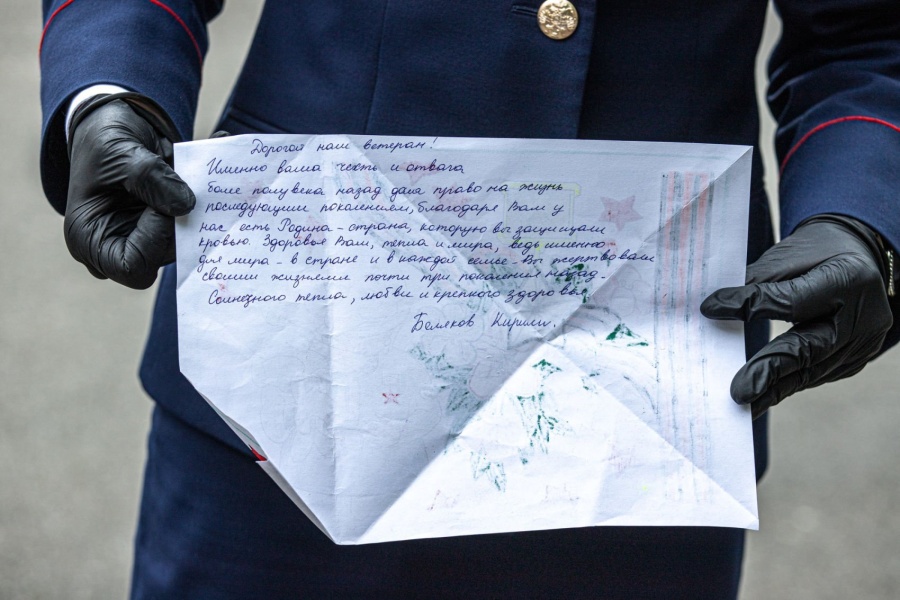 Дорогой наш ветеран!
Именно ваша честь и отвага
боле полувека назад дала право на жизнь
последующим поколениям, благодаря Вам у
нас есть Родина - страна, которую вы защищали
кровью. Здоровья Вам, тепла и мира, ведь именно
для мира - в стране и в каждой семье - Вы жертвовали
своими жизнями почти три поколения назад.
Солнечного тепла, любви и крепкого здоровья.
Беляков Кирилл.